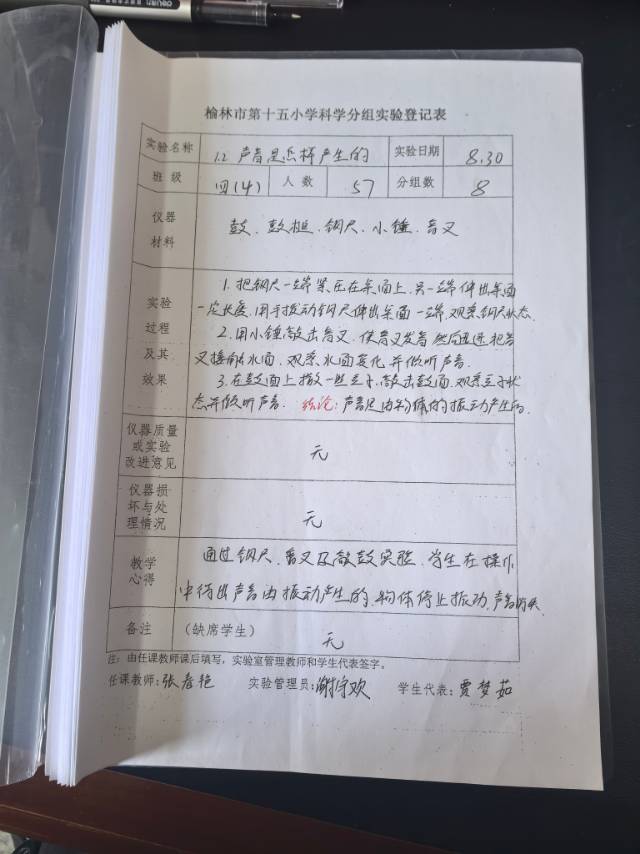 榆林市第十五小学科学分组实验登记表
实验名称 1.2 声音是怎样产生的 实验日期 8.30
班 级 四(4) 人 数 57 分组数 8
仪器材料 鼓、鼓槌、钢尺、小锤、音叉
实验过程及其效果
1.把钢尺一端紧压在桌面上,另一端伸出桌面
一定长度,用手拨动钢尺伸出桌面一端,观察钢尺状态.
2.用小锤敲击音叉,使音叉发音 然后迅速把音
叉接触水面,观察水面变化并倾听声音.
3.在鼓面上撒一些豆子,敲击鼓面,观察豆子状
态并倾听声音. 结论:声音是由物体的振动产生的.
仪器质量或实验改进意见 无
仪器损坏与处理情况 无
教学心得
通过钢尺、音叉及敲鼓实验,学生在操作
中得出声音由振动产生的,物体停止振动,声音消失
备注 (缺席学生) 无
注:由任课教师课后填写,实验室管理教师和学生代表签字。
任课教师:张彦艳 实验管理员:谢欢 学生代表:贾梦茹
deli